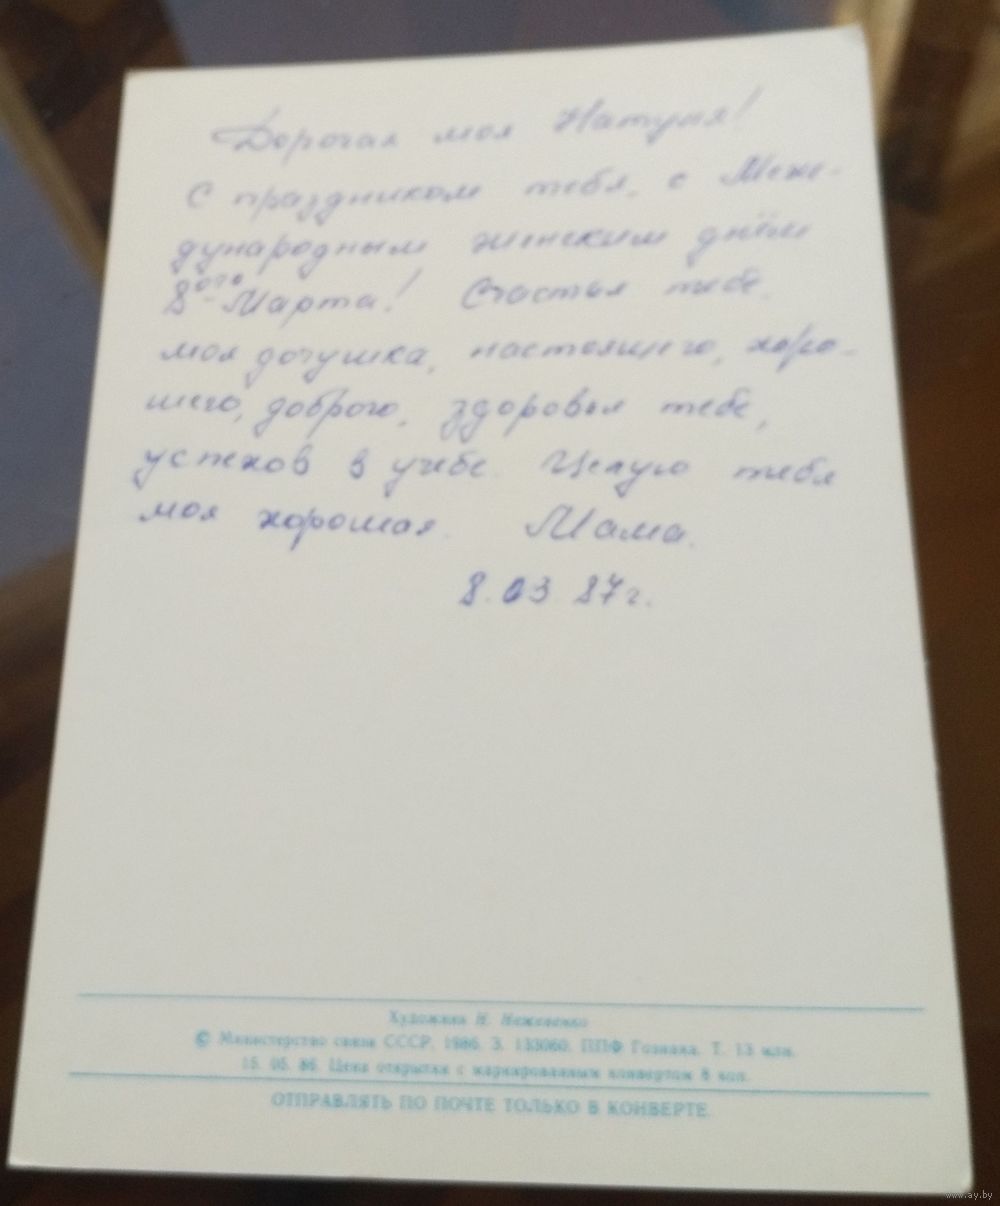 Дорогая моя Натуня!
С праздником тебя, с Меж-
дународным женским днём
8ого Марта! Счастья тебе,
моя дочушка, настоящего, хоро-
шего, доброго, здоровья тебе,
успехов в учебе. Целую тебя
моя хорошая. Мама.
8.03.87г.
Художник И. Неживенко
© Министерство связи СССР, 1986. З. 133060. ППФ Гознака. Т. 13 млн.
15. 05. 86. Цена открытки с маркированным конвертом 8 коп.
ОТПРАВЛЯТЬ ПО ПОЧТЕ ТОЛЬКО В КОНВЕРТЕ
www.ay.by